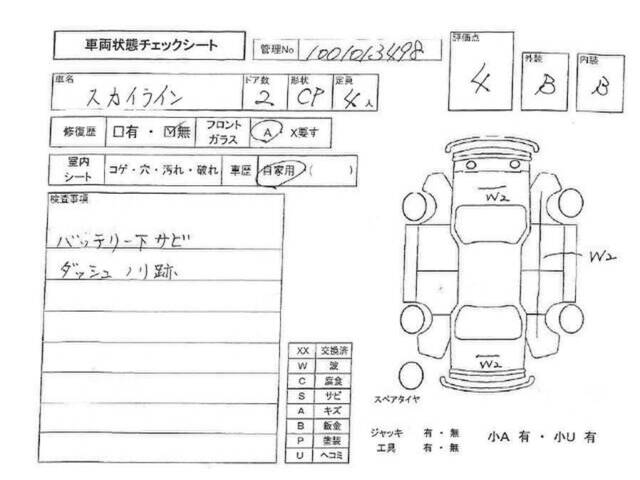 車両状態チェックシート
管理No 1001013498
評価点 4
外装 B
内装 B
車名 スカイライン
ドア数 2
形状 CP
定員 4人
修復歴 □有・☑無
フロントガラス A・X要す
室内シート コゲ・穴・汚れ・破れ
車歴 自家用・( )
検査事項
バッテリー下サビ
ダッシュノリ跡
W2
W2
W2
XX 交換済
W 波
C 腐食
S サビ
A キズ
B 鈑金
P 塗装
U ヘコミ
スペアタイヤ
ジャッキ 有・無
工具 有・無
小A 有・小U 有